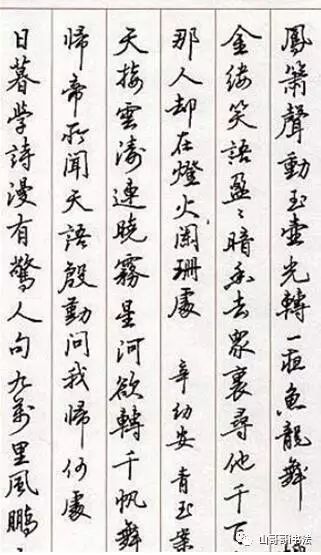 鳳簫聲動玉壺光轉一夜魚龍舞
金縷笑語盈々暗香去眾裏尋他千百
那人却在燈火闌珊處 辛幼安 青玉案
天接雲濤連曉霧星河欲轉千帆舞
歸帝所聞天語殷勤問我歸何處
日暮學詩漫有驚人句九萬里風鵬
山哥哥书法